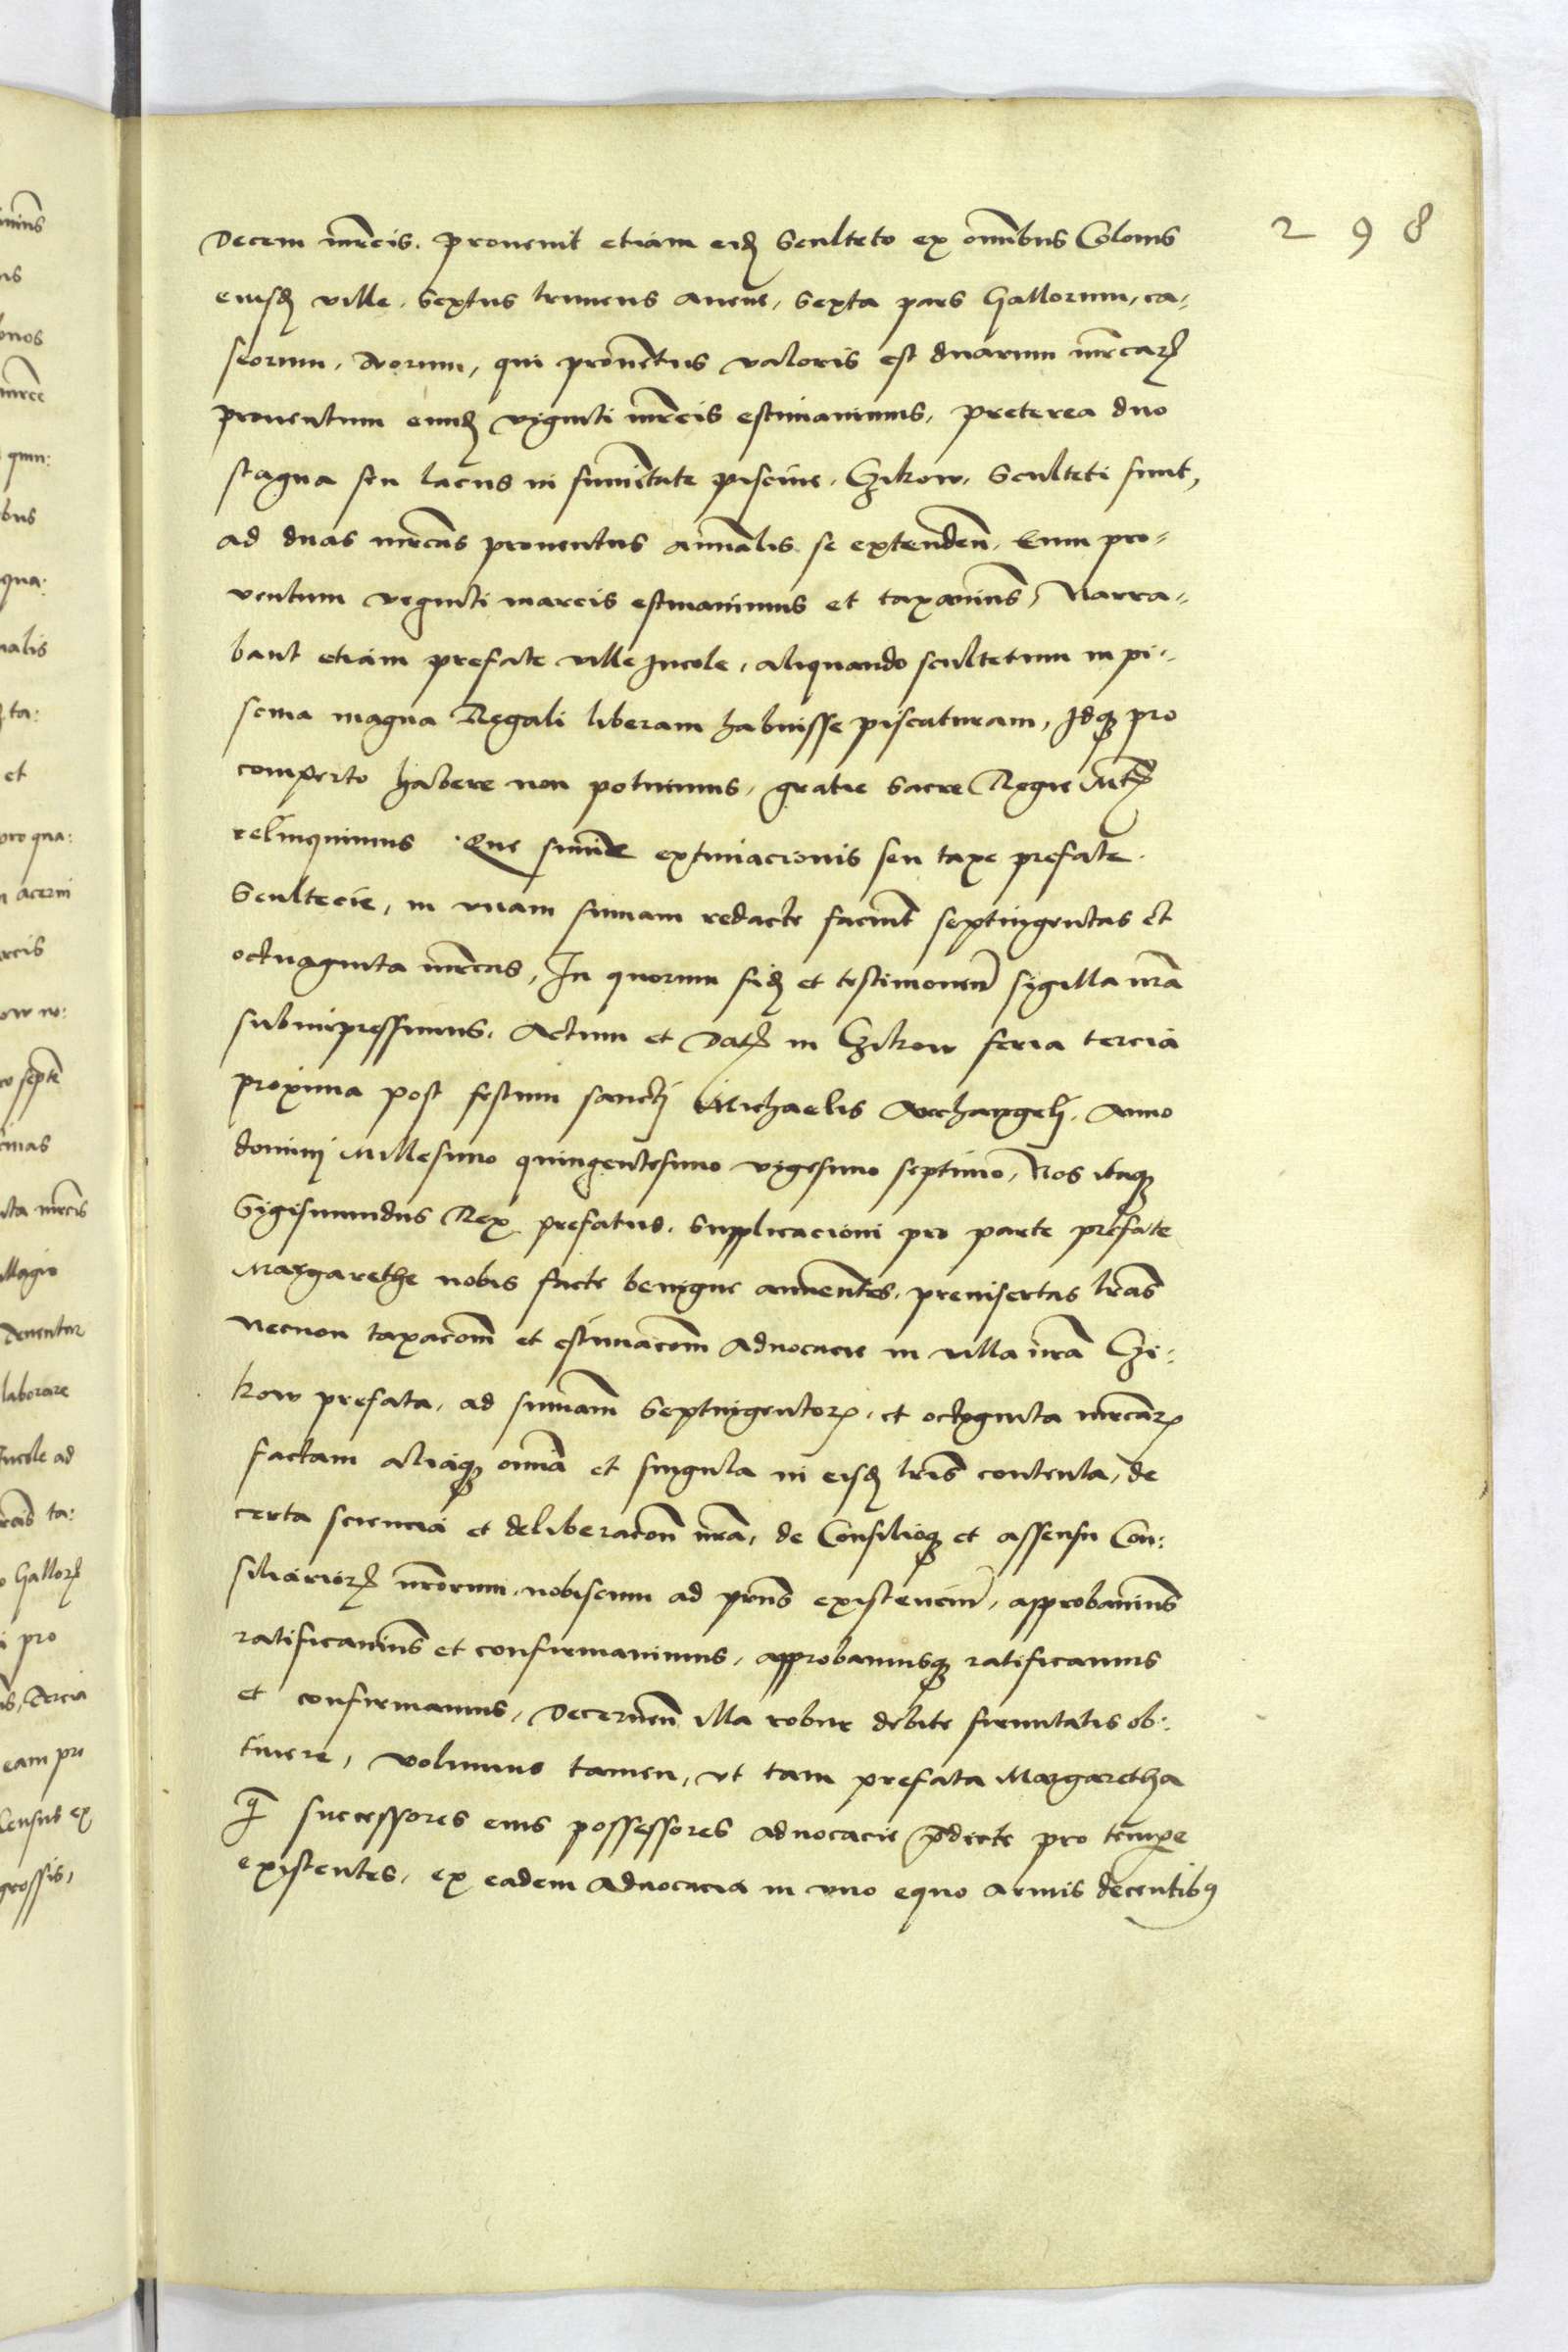 298
Decem mrcis. prouenit etiam eid Sculteto ex omnibus Colonis
eiusd ville. Sextus truncus auene, Sexta pars Gallorum, ca-
seorum, Ovorum, qui prouentus valoris est duarum mrcar
prouentum eund viginti mrcis estimauimus, preterea duo
stagna seu lacus in sumitate piscine. Czikow. Sculteti sunt,
ad duas mrcas prouentus annalis se extenden. Eum pro-
uentum veginti marcis estimauimus et taxauimus, Narra-
bant etiam prefate ville Incole, aliquando scultetum in pi-
scina magna Regali liberam habuisse piscaturam, Idq pro
comperto habere non potuimus, gratie Sacre Regie Mts
relinquimus. Que summe extimacionis seu taxe prefate
Scultecie, in vnam sumam redacte faciunt septingentas et
octuaginta mrcas, In quorum fid et testimonium sigilla nra
subimpressimus. Actum et Dat in Czikow feria tercia
proxima post festum sancti Michaelis Archangeli. Anno
domini Millesimo quingentesimo vigesimo septimo, Nos itaq
Sigismundus Rex prefatus. Supplicacioni pro parte prefate
Margarethe nobis facte benigne annuentes. preinsertas lras
Necnon taxacom et estimacom Aduocacie in villa nra Czi-
kow prefata, ad sumam Septingentor. et octoginta mrcar
factam aliaq omia et singula in eisd lris contenta, de
certa sciencia et deliberacon nra, de Consilioq et assensu Con-
siliarior nrorum nobiscum ad prns existencium, approbauimus
ratificauimus et confirmauimus, approbamusq ratificamus
et confirmamus, Decernen illa robur debite firmitatis ob-
tinere, volumus tamen, vt tam prefata Margaretha
q successores eius possessores aduocacie pdicte pro tempore
existentes, ex eadem Aduocacia in vno equo armis decentibus